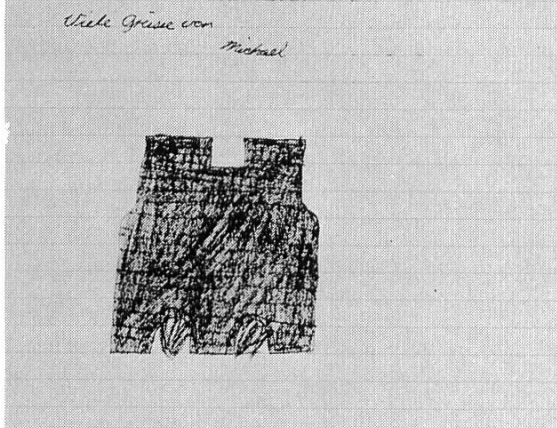 Viele Grüsse von
Michael